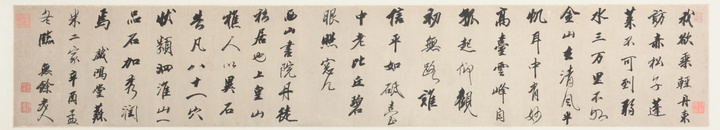 我欲乘輕舟東
訪赤松子蓬
萊不可到弱
水三万里不如
金山去清風半
帆耳中有妙
高臺雲峰自
孤起仰觀
初無路誰
信平如砥臺
中老比丘碧
眼照窓几
西山書院丹徒
私居也上皇山
樵人以異石
告凡八十一穴
狀類泗淮山一
品石加秀潤
焉 戲鴻堂蘇
米二家辛酉孟
冬臨 無餘老人